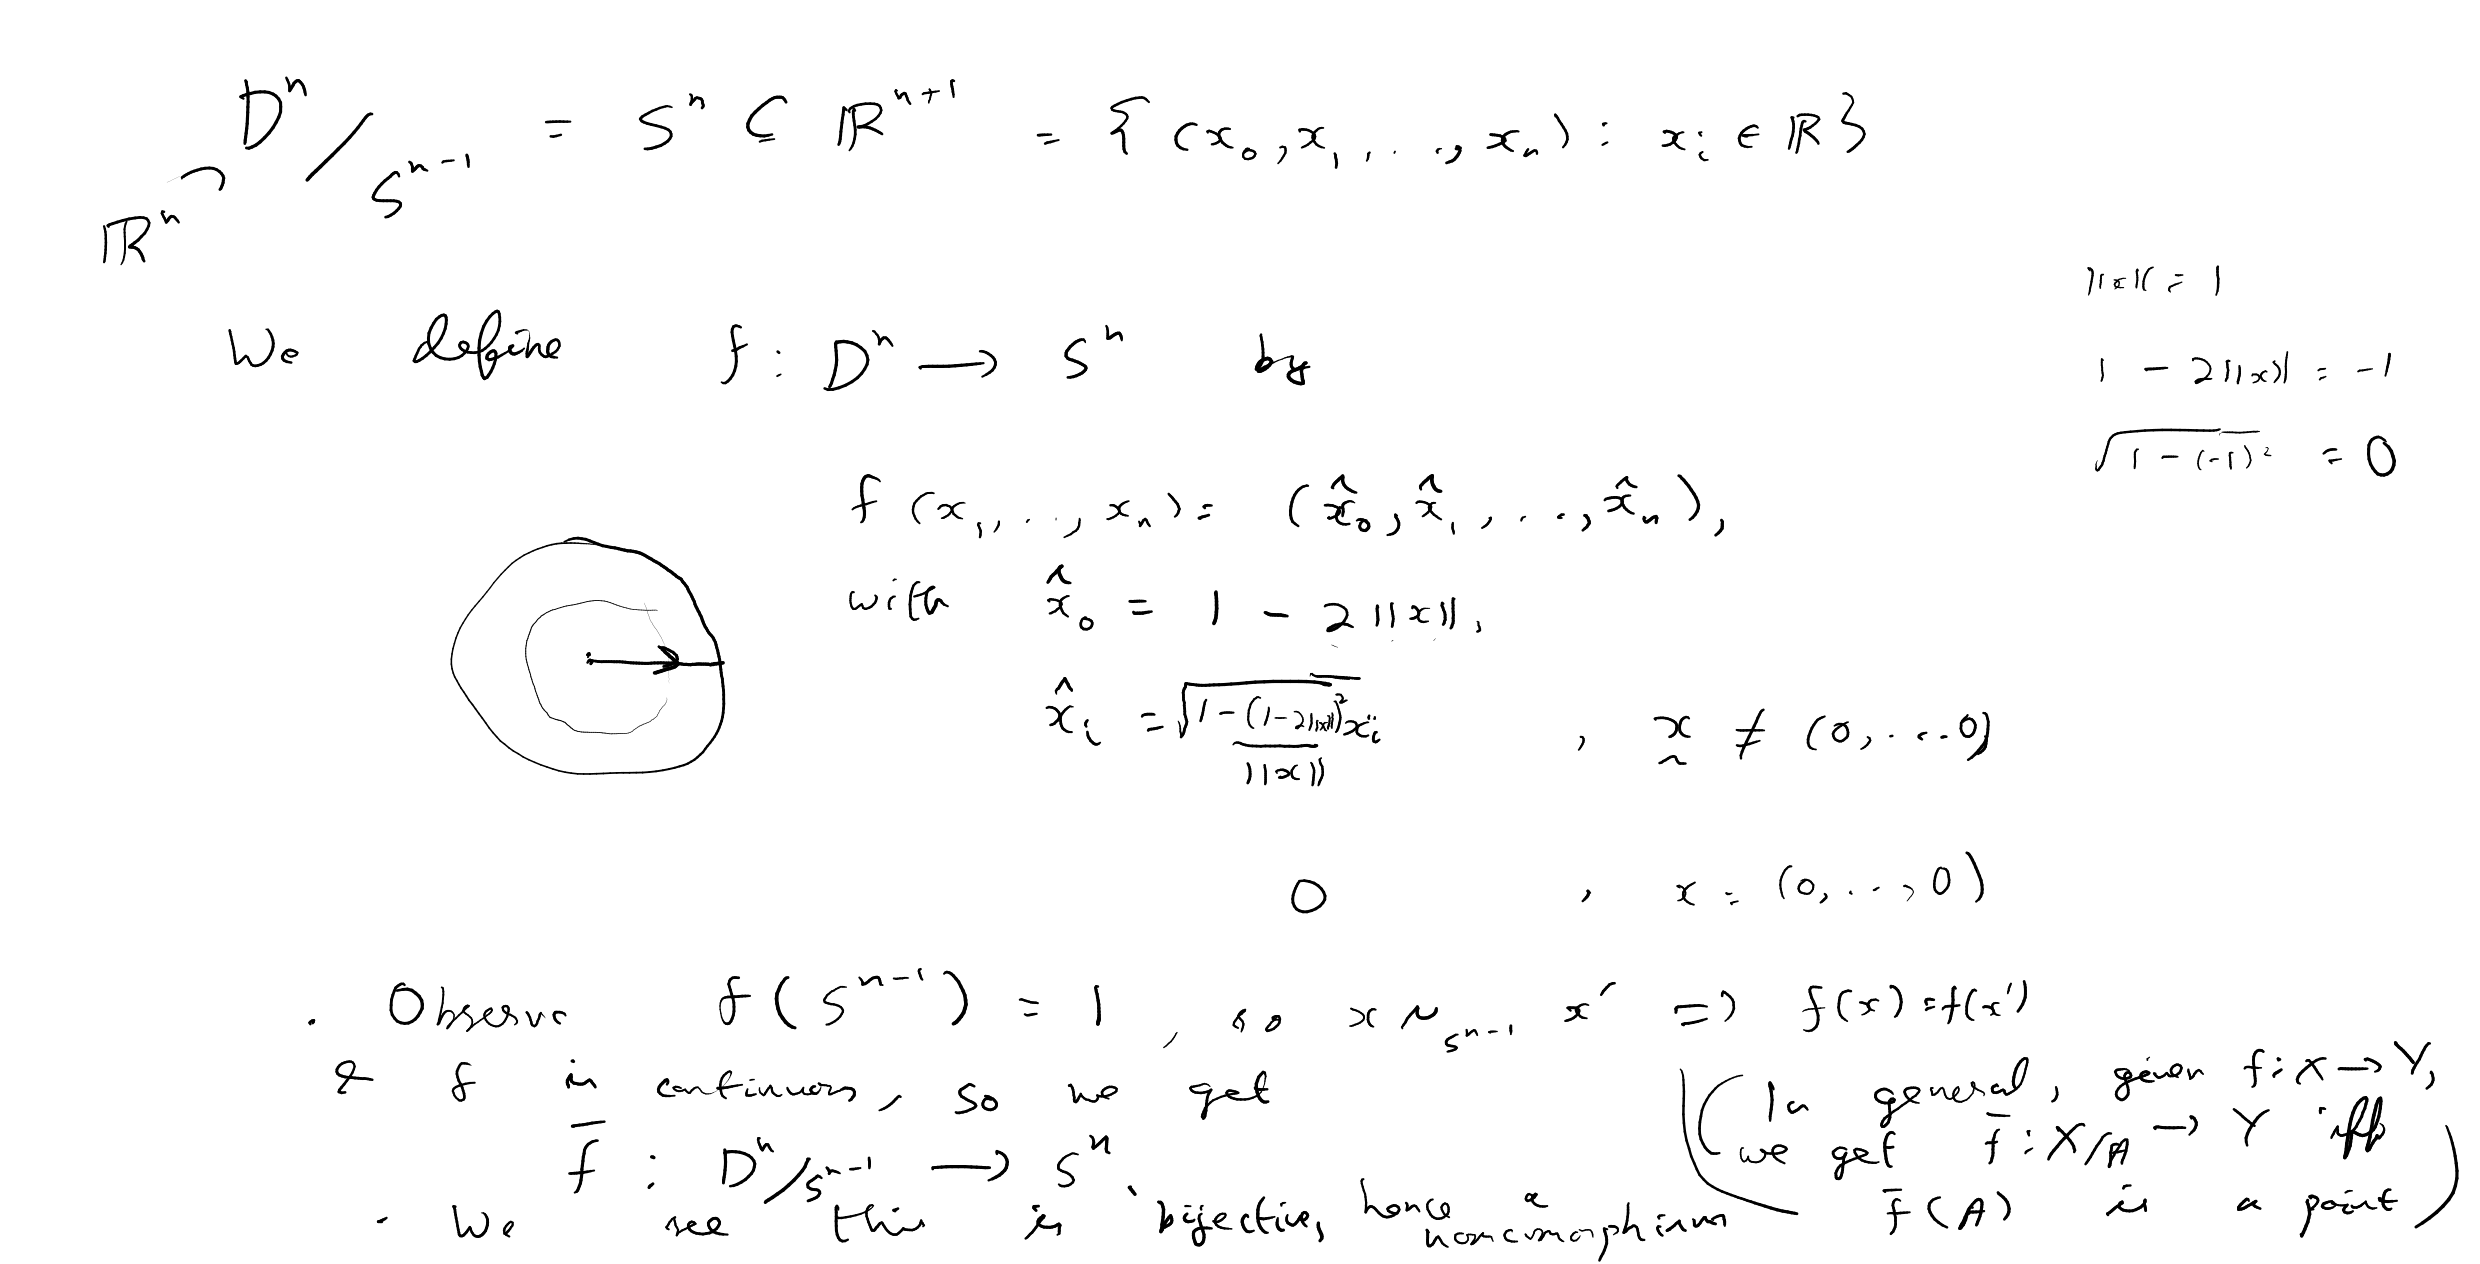 Dⁿ / Sⁿ⁻¹ = Sⁿ ⊆ ℝⁿ⁺¹ = { (x₀, x₁, ..., xₙ) : xᵢ ∈ ℝ }
ℝⁿ
||x|| = 1
We define f : Dⁿ → Sⁿ by
1 - 2||x|| = -1
√(1 - (-1)²) = 0
f(x₁, ..., xₙ) = (x̂₀, x̂₁, ..., x̂ₙ),
with x̂₀ = 1 - 2||x||,
x̂ᵢ = √(1 - (1 - 2||x||)²) xᵢ / ||x|| , x ≠ (0, ... 0)
0 , x = (0, ..., 0)
· Observe f(Sⁿ⁻¹) = 1, so x ~_{Sⁿ⁻¹} x′ ⇒ f(x) = f(x′)
& f is continuous, so we get
f̄ : Dⁿ/Sⁿ⁻¹ → Sⁿ.
(In general, given f : X → Y,
we get f̄ : X/A → Y iff
f̄(A) is a point)
· We see this is bijective, hence a homeomorphism